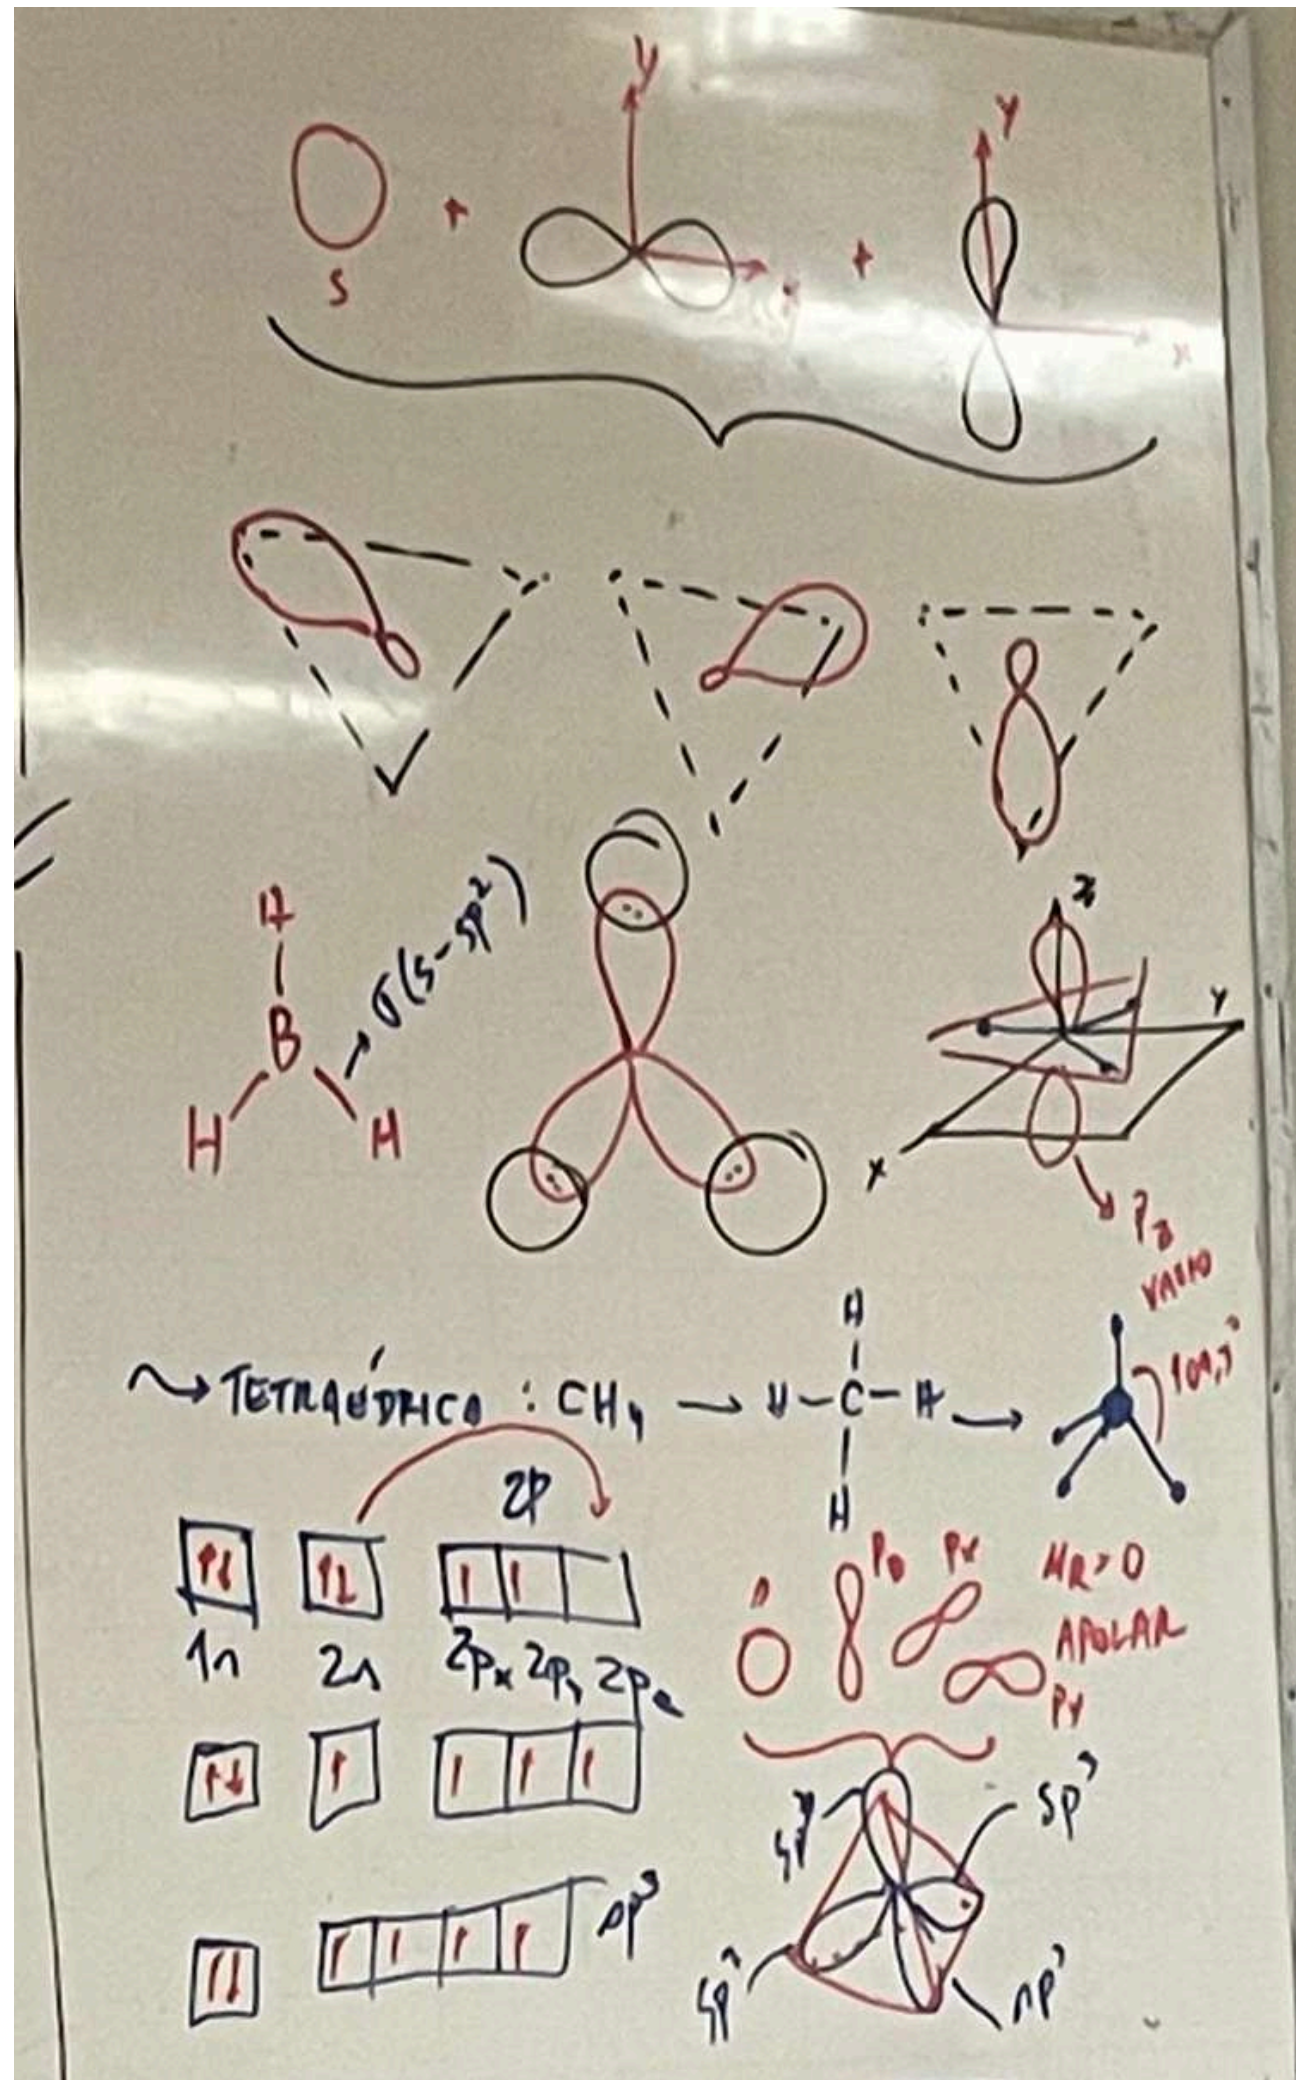 y
Y
S + + x
x
H
B
H H
σ(s-sp²)
z
Y
X
Pz
VAZIO
TETRAÉDRICA : CH4
H
H-C-H
H
109,5°
2p
1s 2s 2px 2py 2pz
s Pz Px
Py
APOLAR
sp³
sp³
sp³
sp³
sp³